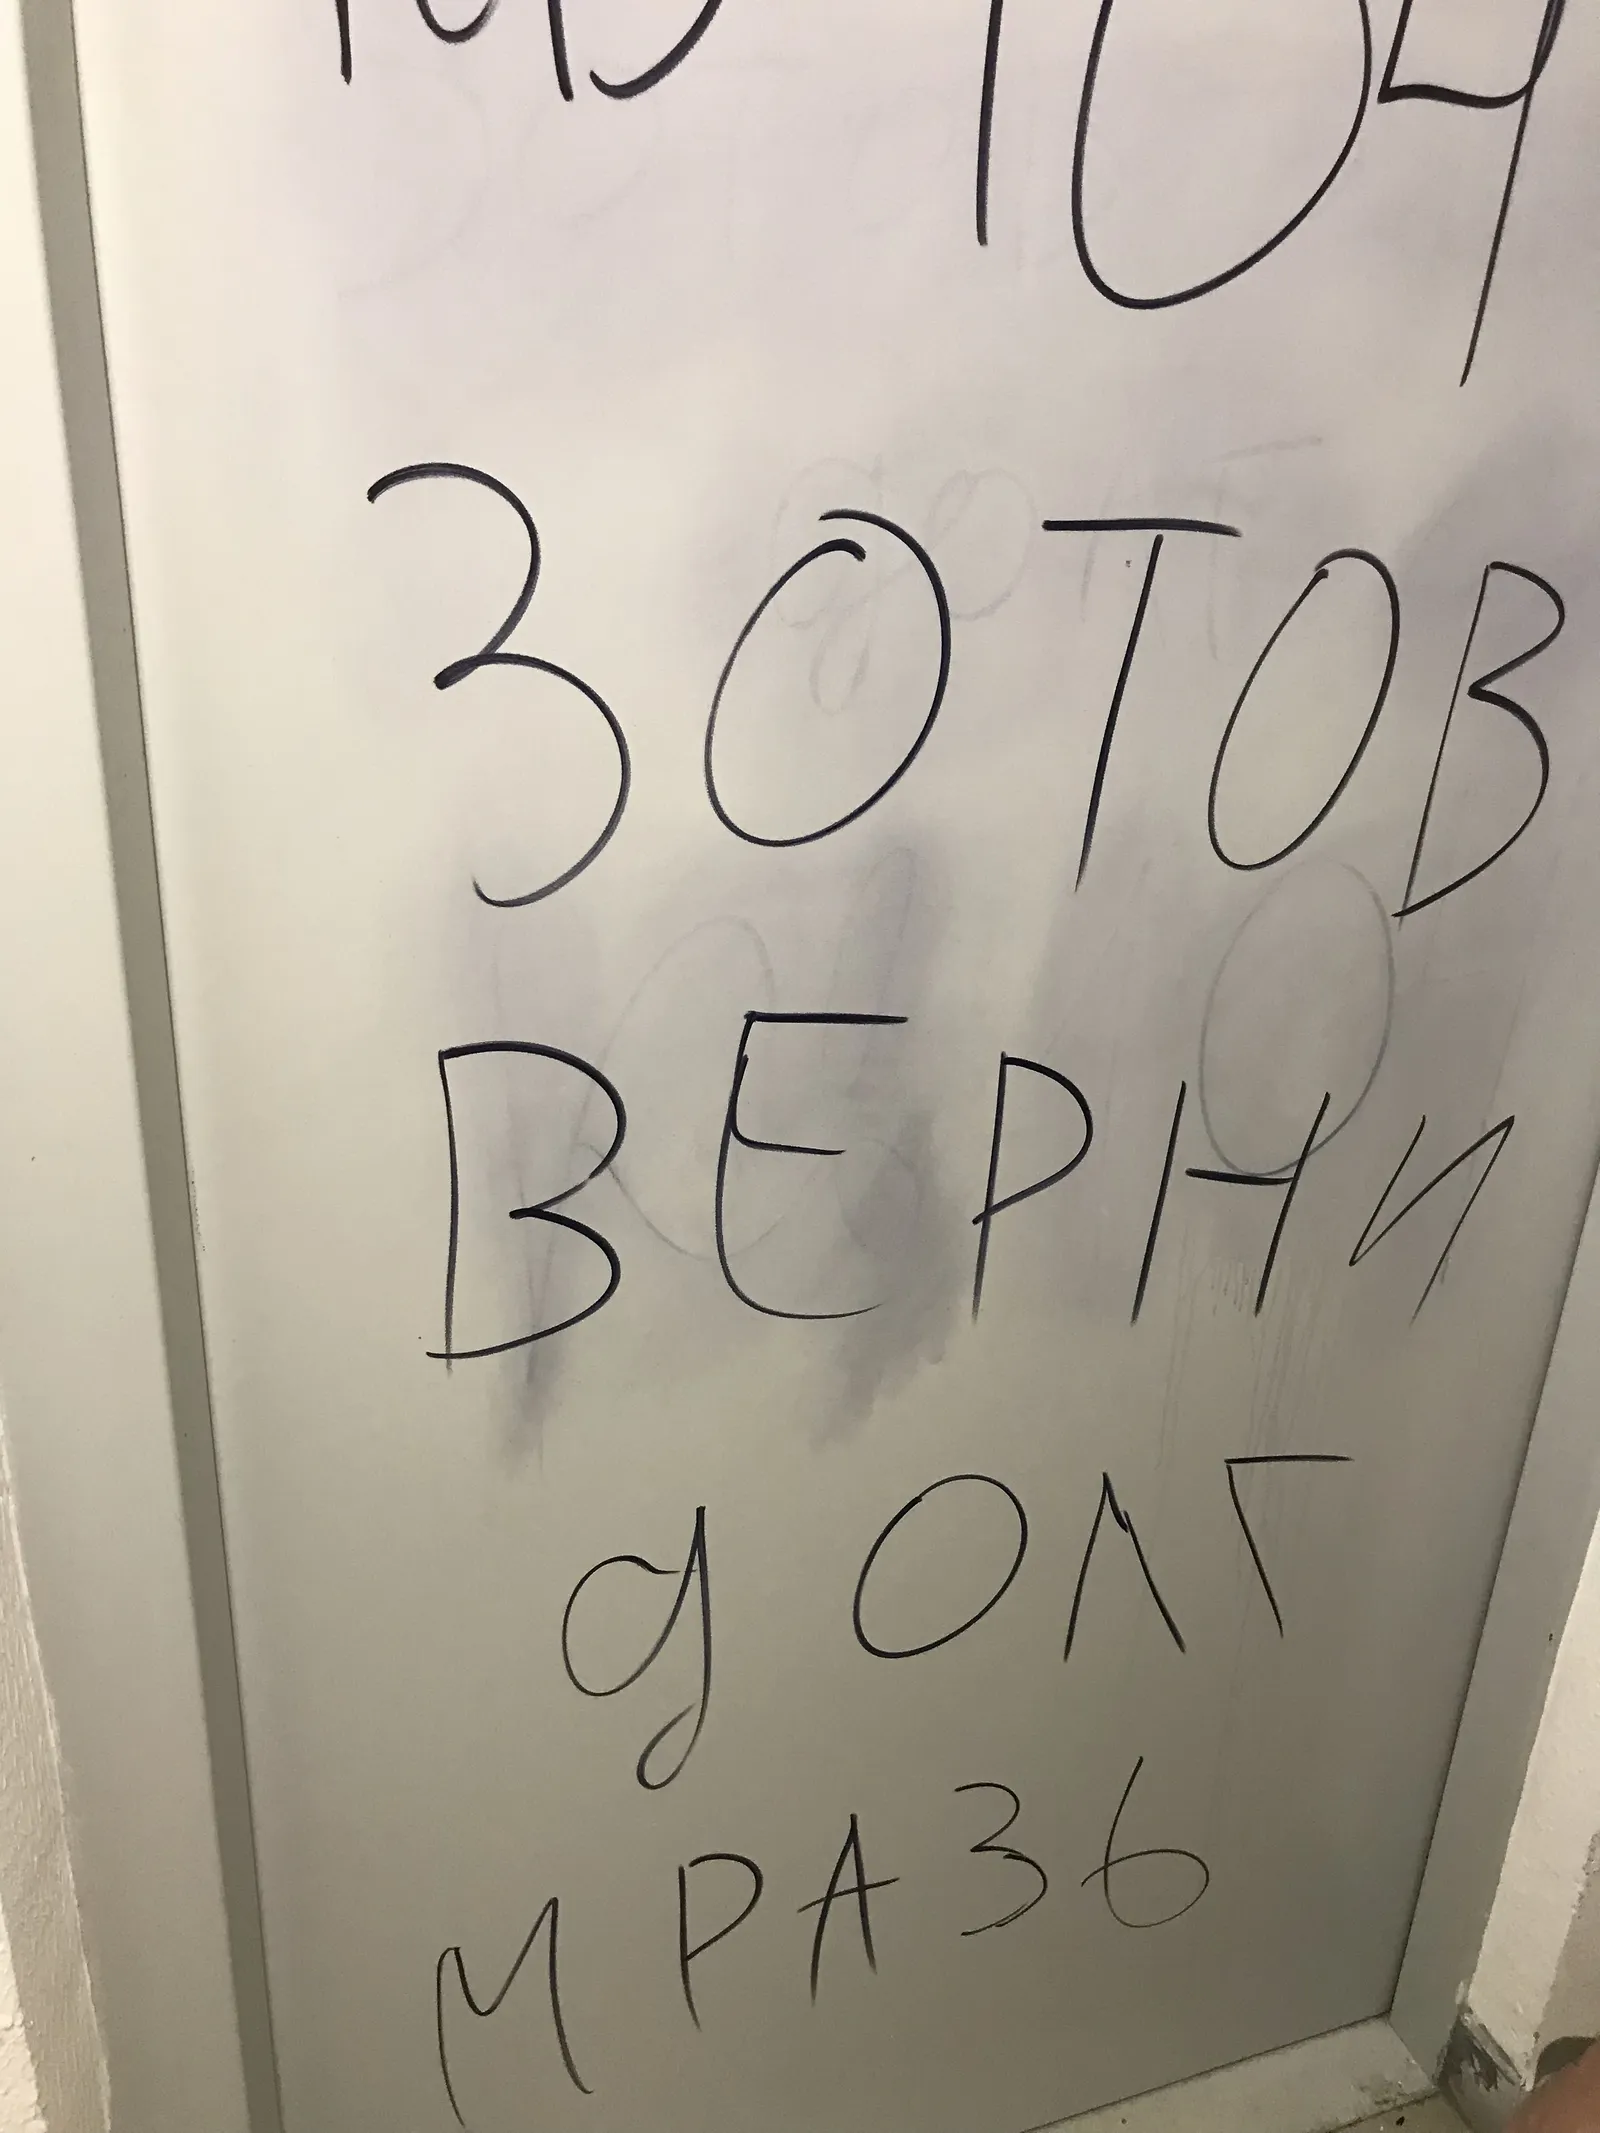 ЗОТОВ
ВЕРНИ
дОЛГ
МРАЗЬ